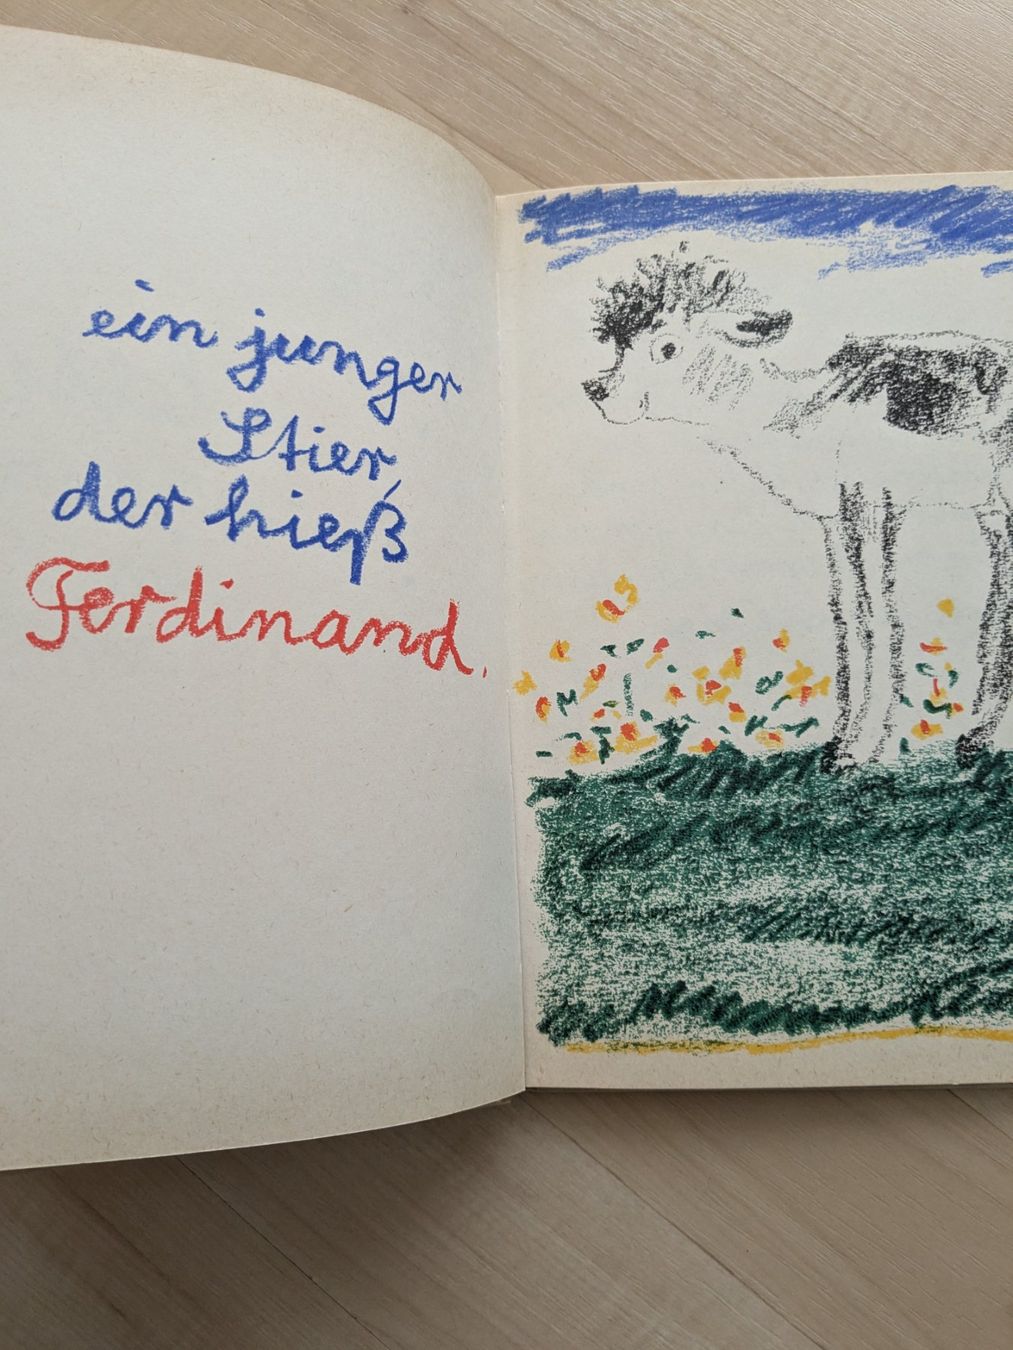 ein junger
Stier,
der hieß
Ferdinand.